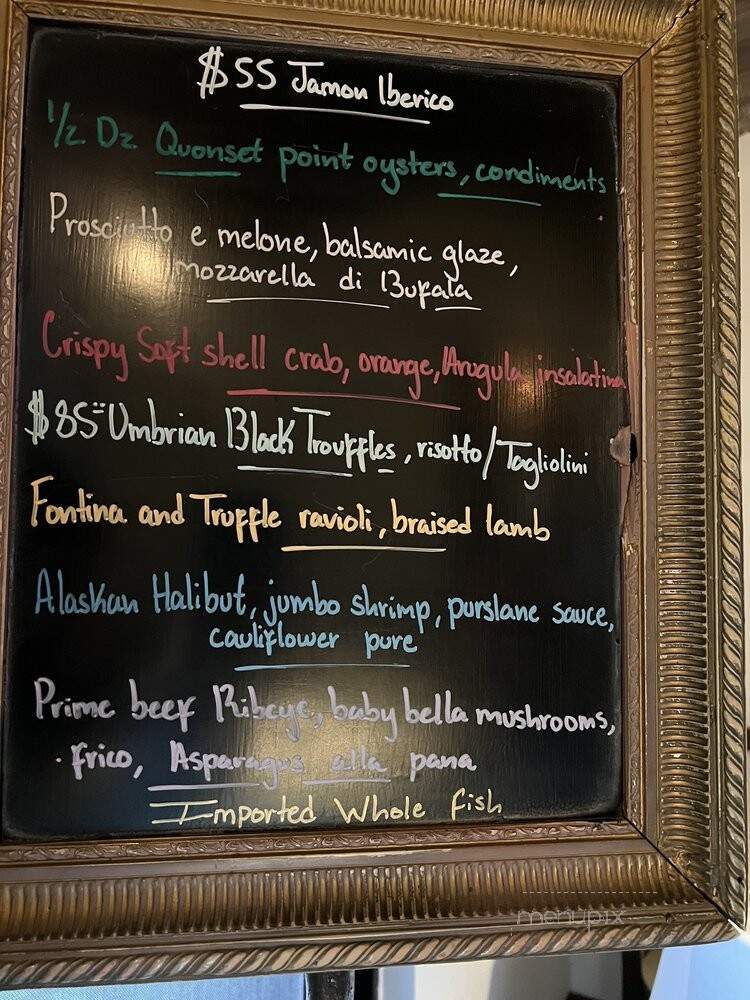 $55 Jamon Iberico
1/2 Dz Quonset point oysters, condiments
Prosciutto e melone, balsamic glaze,
mozzarella di Bufala
Crispy Soft shell crab, orange, Arugula insalatina
$85= Umbrian Black Trouffles, risotto/Tagliolini
Fontina and Truffle ravioli, braised lamb
Alaskan Halibut, jumbo shrimp, purslane sauce,
cauliflower pure
Prime beef Ribeye, baby bella mushrooms,
frico, Asparagus alla pana
Imported Whole fish
menupix